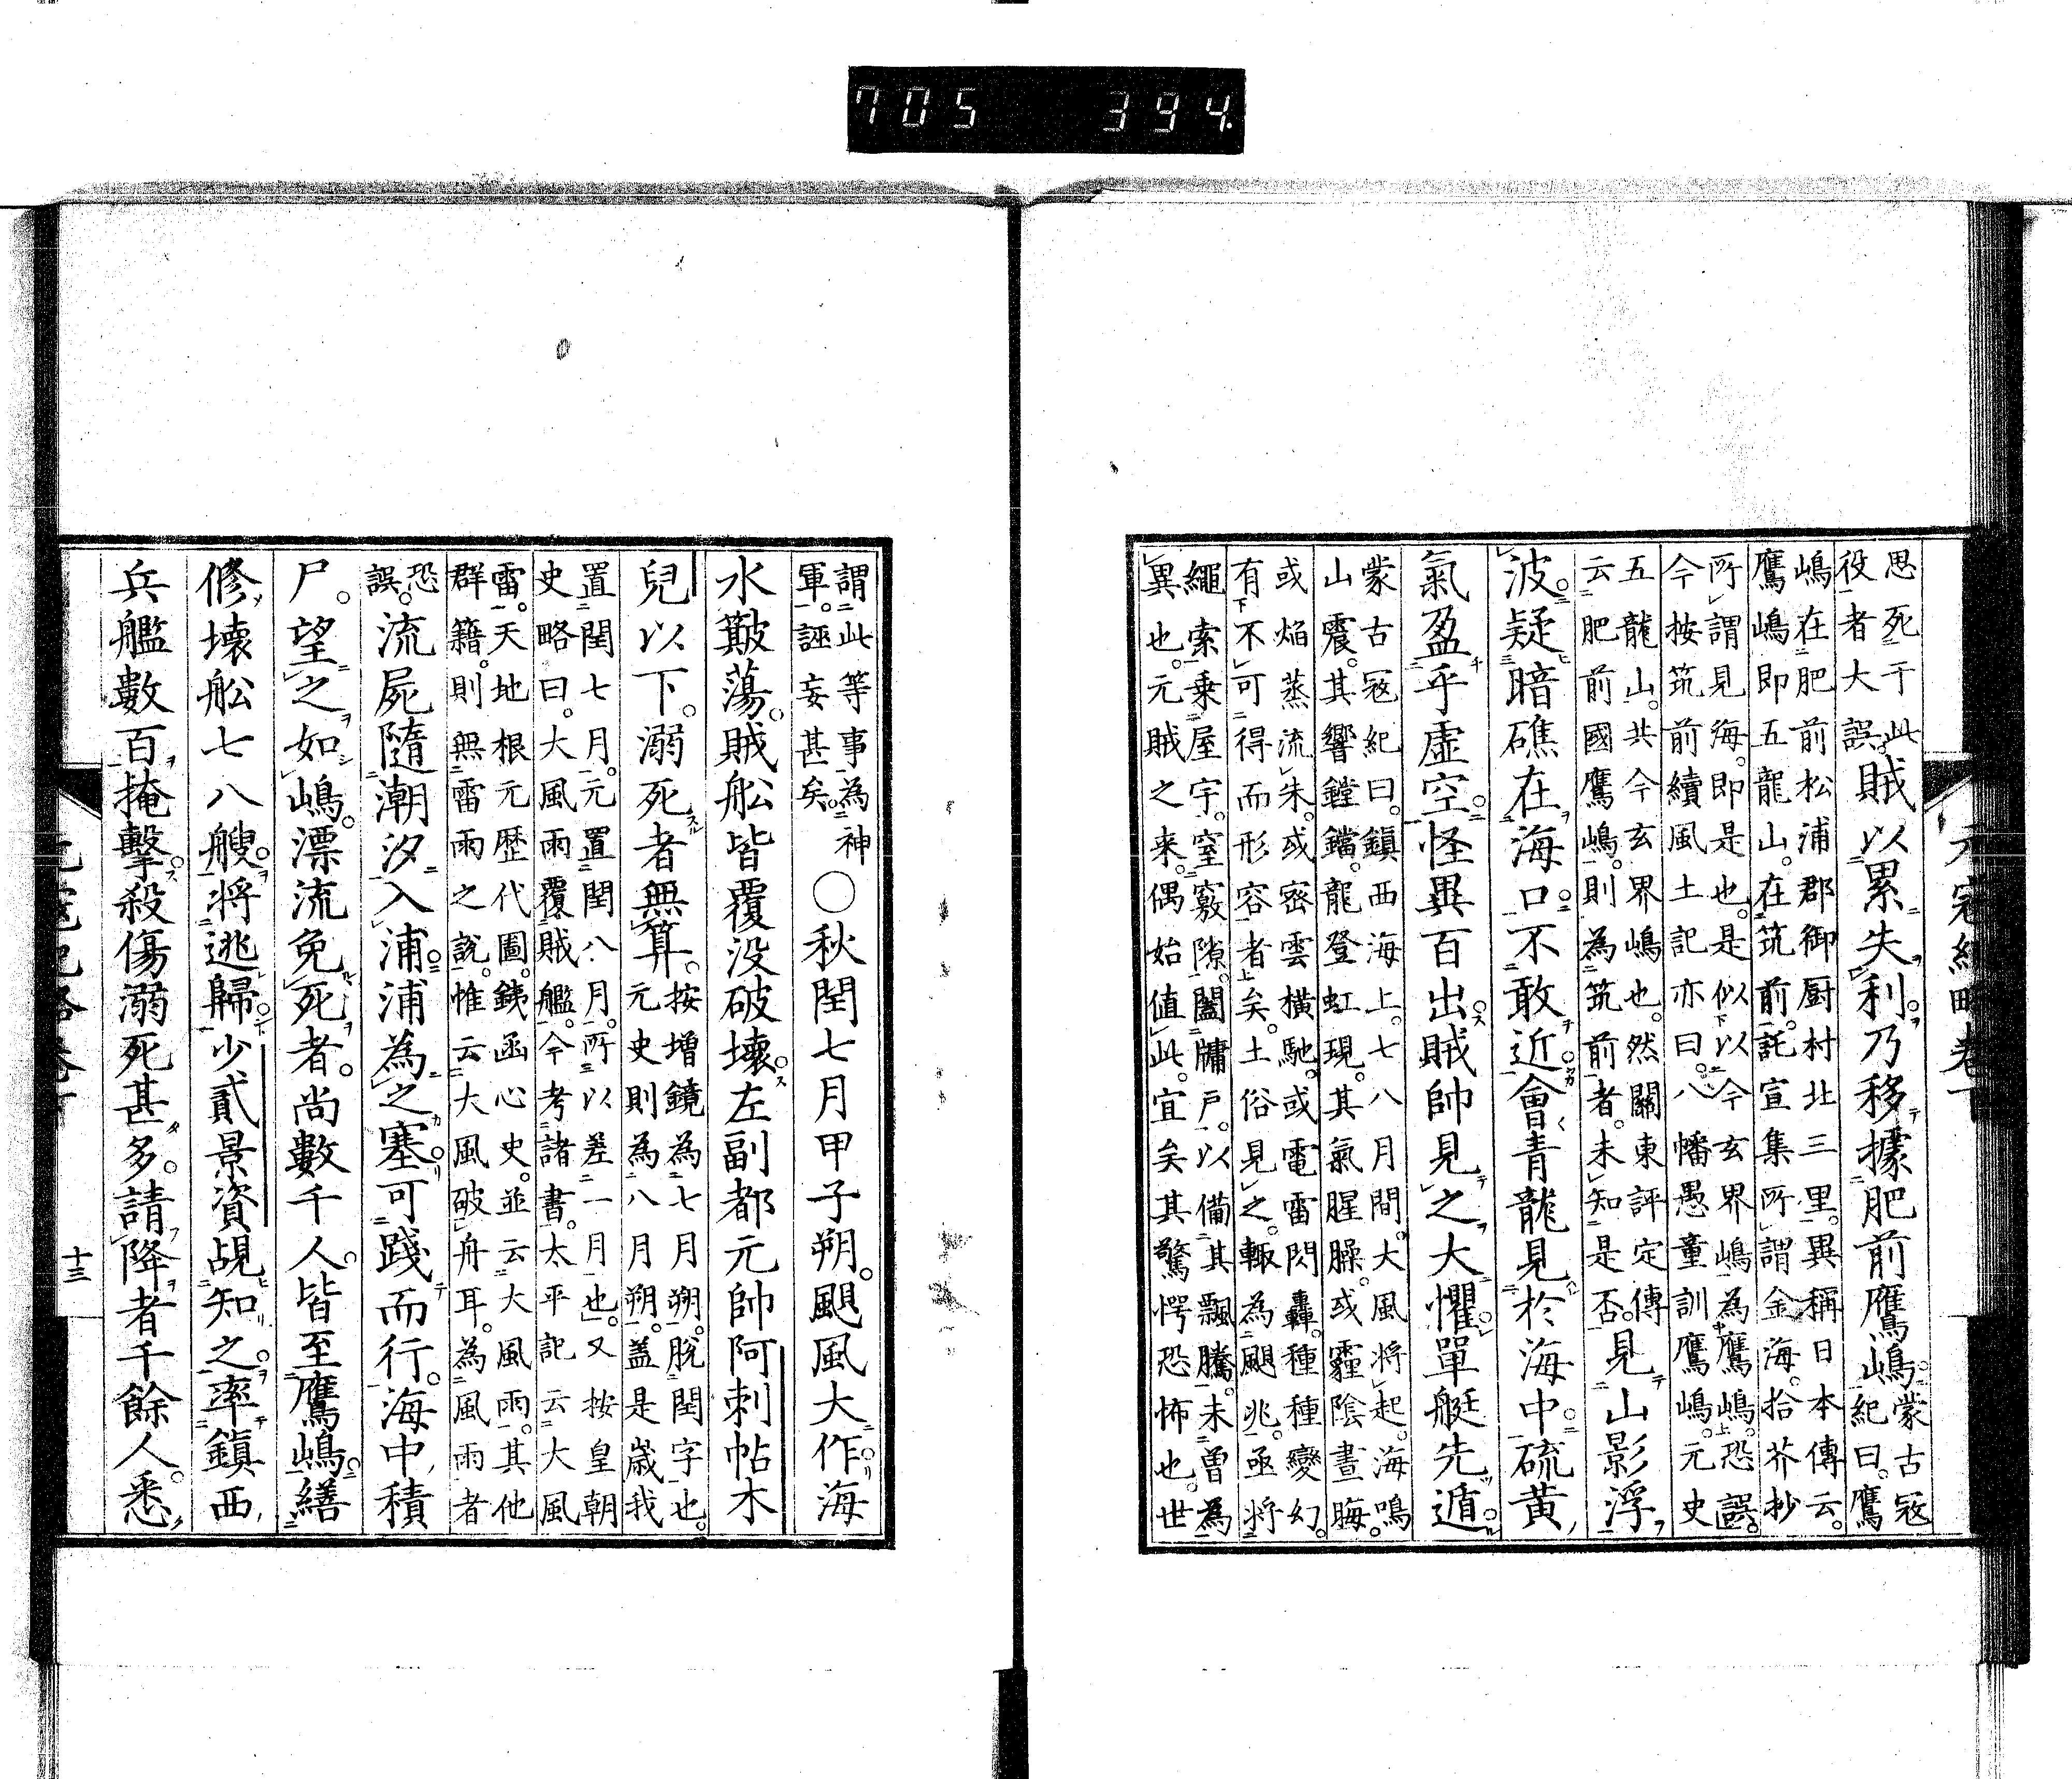 元寇紀略卷下
思死于此
役者大誤。
賊以累失利。乃移據肥前鷹嶋。
蒙古寇
紀曰。鷹
嶋在肥前松浦郡御厨村北三里。異稱日本傳云。
鷹嶋即五龍山。在筑前。託宣集所謂金海。拾芥抄
所謂見海。即是也。是似以今玄界嶋為鷹嶋。恐誤。
今按筑前續風土記亦曰。八幡愚童訓鷹嶋。元史
五龍山。共今玄界嶋也。然關東評定傳
云肥前國鷹嶋。則為筑前者。未知是否。
見山影浮
波。疑暗礁在海口。不敢近。會青龍見於海中。硫黄
氣盈乎虚空。怪異百出賊帥見之大懼。單艇先遁。
蒙古寇紀曰。鎮西海上。七八月間。大風將起。海鳴
山震。其響鏜鎝。龍登虹現。其氣腥臊。或霾陰晝晦。
或焔蒸流朱。或密雲橫馳。或電雷閃轟。種種變幻。
有不可得而形容者矣。土俗見之。輙為颶兆。亟將
繩索乗屋宇。窒竅隙。闔牖戸。以備其飄騰。未曽為
異也。元賊之来。偶始値此。宜矣其驚愕恐怖也。世
謂此等事為神
軍。誣妄甚矣。
○秋閏七月甲子朔。颶風大作海
水簸蕩。賊舩皆覆没破壊。左副都元帥阿剌帖木
兒以下。溺死者無算。
按増鏡為七月朔。脱閏字也。
元史則為八月朔。蓋是歳我
置閏七月。元置閏八月。所以差一月也。又按皇朝
史略曰。大風雨覆賊艦。今考諸書。太平記云大風
雷。天地根元歴代圖。銕函心史。並云大風雨。其他
群籍。則無雷雨之說。惟云大風破舟耳。為風雨者
恐
誤。
流屍隨潮汐入浦。浦為之塞。可踐而行。海中積
尸。望之如嶋。漂流免死者。尚數千人。皆至鷹嶋。繕
修壊舩七八艘。將逃歸。少貳景資覘知之。率鎮西
兵艦數百掩擊。殺傷溺死甚多。請降者千餘人。悉
十三